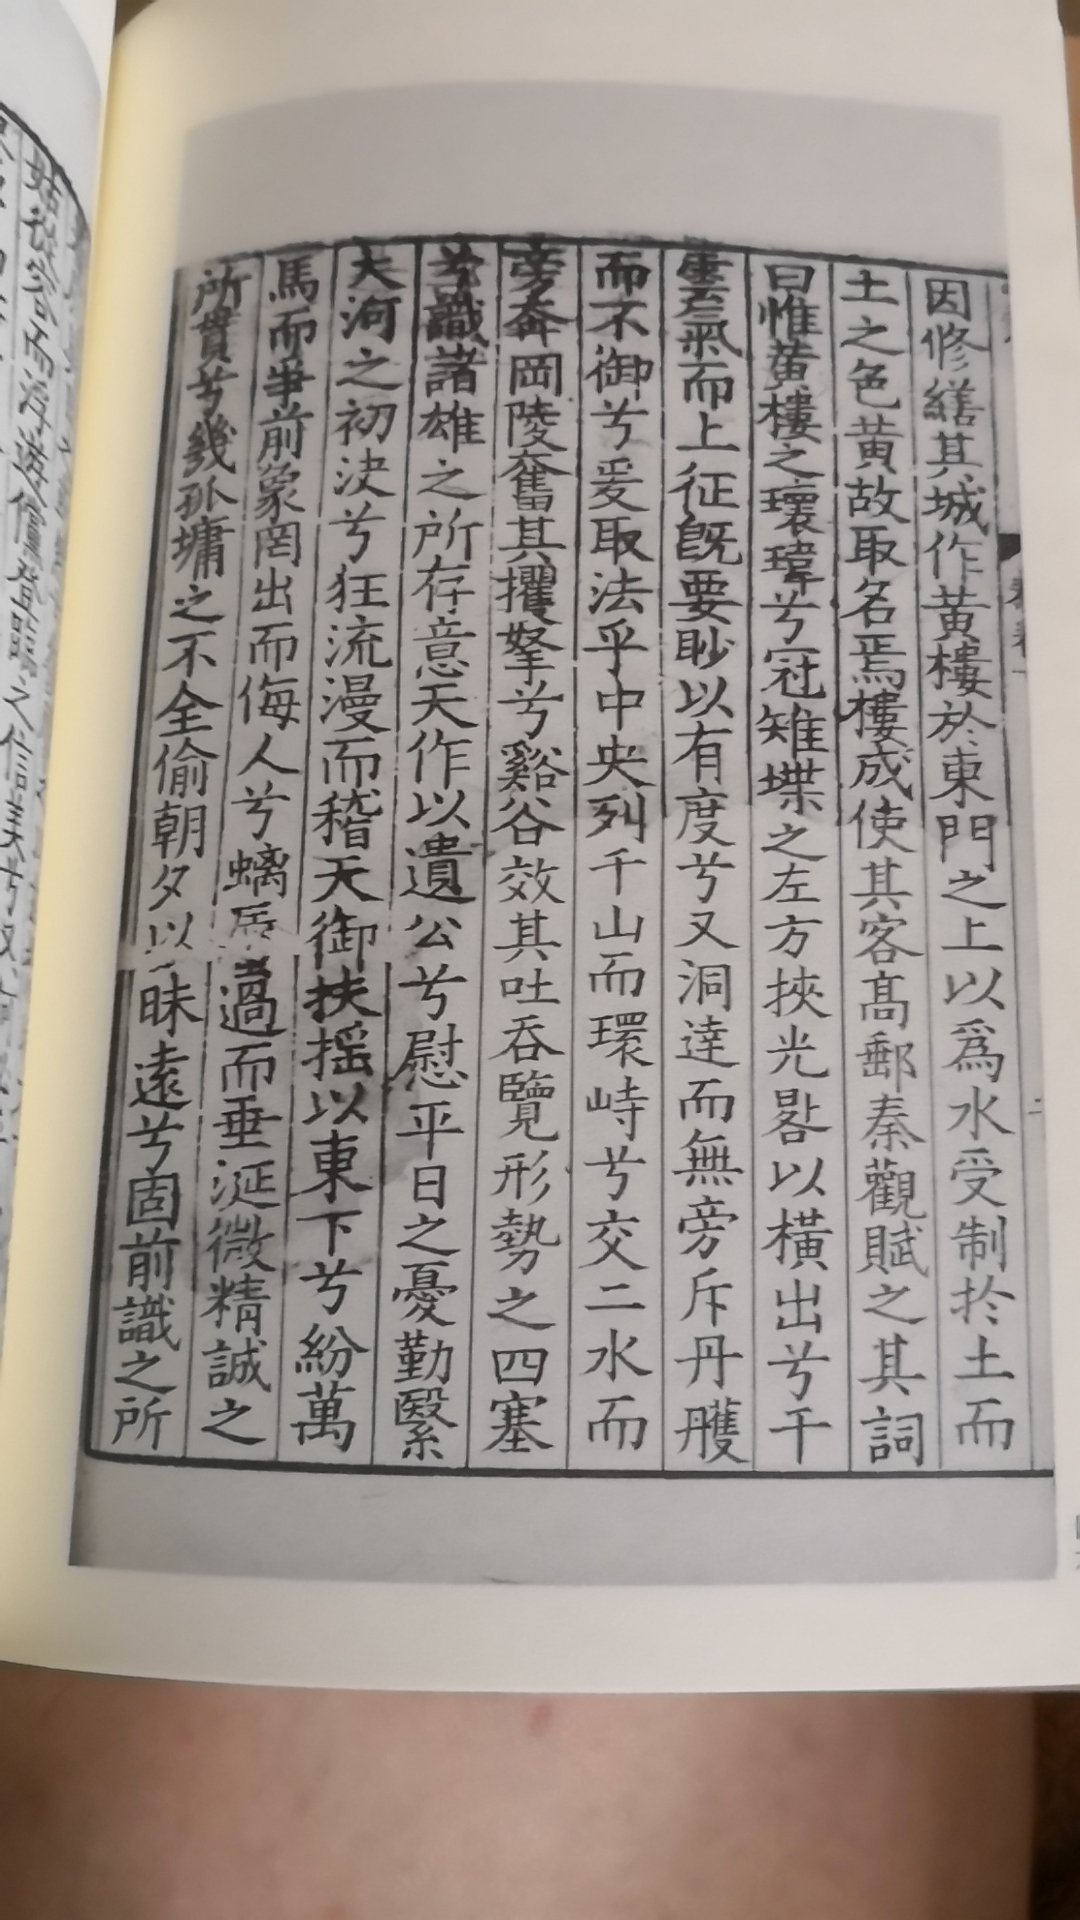 因修繕其城作黄樓於東門之上以爲水受制於土而
土之色黄故取名焉樓成使其客髙郵秦觀賦之其詞
曰惟黄樓之瓌瑋兮冠雉堞之左方挾光晷以横出兮干
雲氣而上征旣要眇以有度兮又洞達而無旁斥丹雘
而不御兮爰取法乎中央列千山而環峙兮交二水而
旁奔岡陵奮其攫拏兮谿谷效其吐吞覽形勢之四塞
兮識諸雄之所存意天作以遺公兮慰平日之憂勤繄
大河之初決兮狂流漫而稽天御扶摇以東下兮紛萬
馬而爭前象罔出而侮人兮螭蜃過而垂涎微精誠之
所貫兮幾孤墉之不全偷朝夕以昧逺兮固前識之所
姑從容而浮遊儻登臨之信美兮